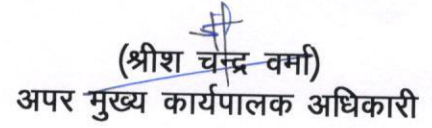 (श्रीश चन्द्र वर्मा)
अपर मुख्य कार्यपालक अधिकारी